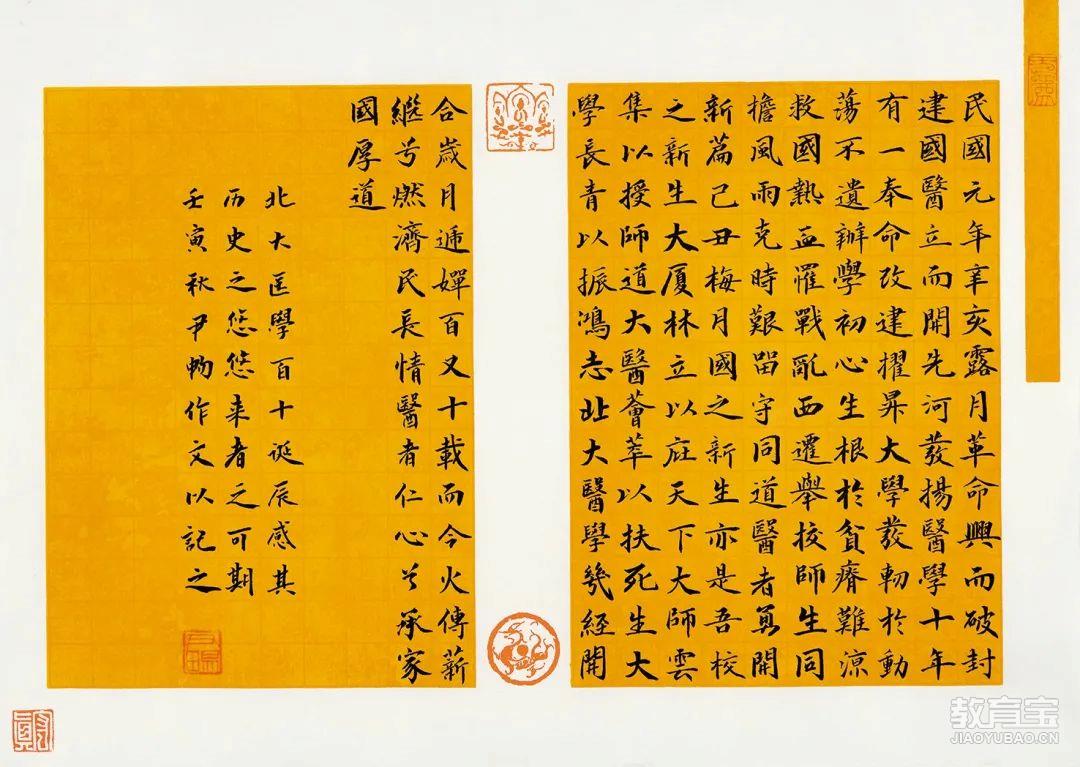 民國元年辛亥露月革命興而破封
建國醫立而開先河發揚醫學十年
有一奉命改建擢昇大學發軔於動
蕩不遺辦學初心生根於貧瘠難涼
救國熱血罹戰亂西遷舉校師生同
擔風雨克時艱留守同道醫者勇開
新篇己丑梅月國之新生亦是吾校
之新生大厦林立以庇天下大師雲
集以授師道大醫薈萃以扶死生大
學長青以振鴻志北大醫學幾經開
合歲月遞嬋百又十載而今火傳薪
繼兮燃濟民長情醫者仁心兮承家
國厚道
北大医學百十诞辰感其
历史之悠悠来者之可期
壬寅秋尹畅作文以記之
教育宝
JIAOYUBAO.CN